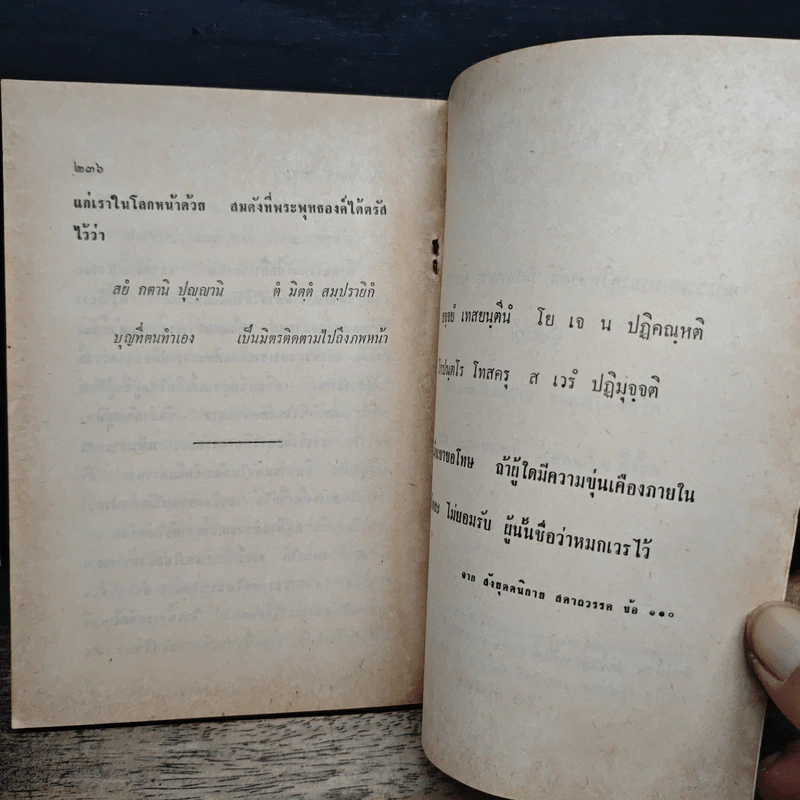 ๒๓๖
แก่เราในโลกหน้าด้วย สมดังที่พระพุทธองค์ได้ตรัส
ไว้ว่า
สยํ กตานิ ปุญฺญานิ ตํ มิตฺตํ สมฺปรายิกํ
บุญที่ตนทำเอง เป็นมิตรติดตามไปถึงภพหน้า
เทสยนฺตีนํ โย เจ น ปฏิคณฺหติ
โทสครุ ส เวรํ ปฏิมุจฺจติ
ขอโทษ ถ้าผู้ใดมีความขุ่นเคืองภายใน
ไม่ยอมรับ ผู้นั้นชื่อว่าหมกเวรไว้
จาก สังยุตตนิกาย สคาถวรรค ข้อ ๑๑๐